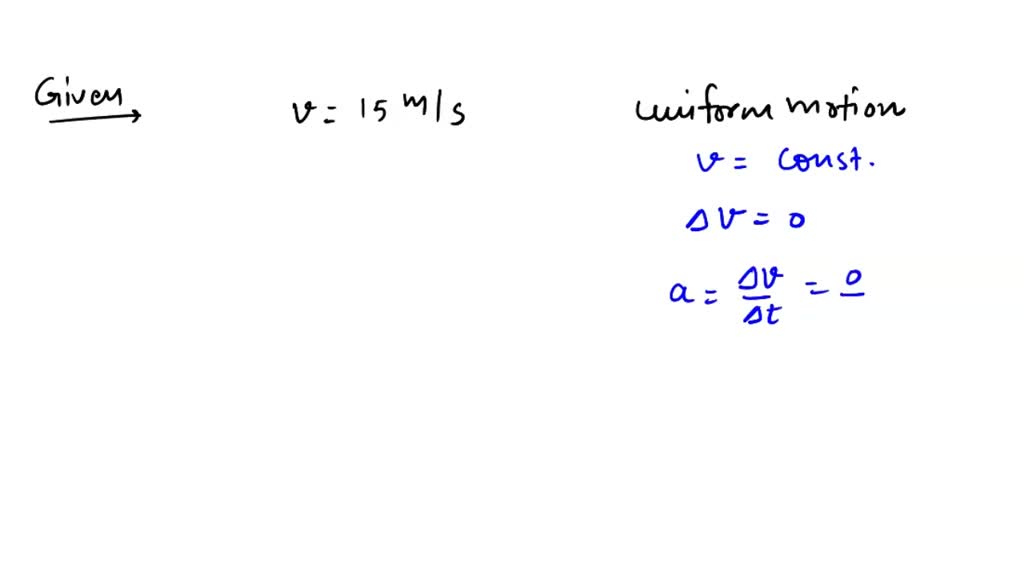 Given
v = 15 m/s
uniform motion
v = const.
Δv = 0
a = Δv/Δt = 0